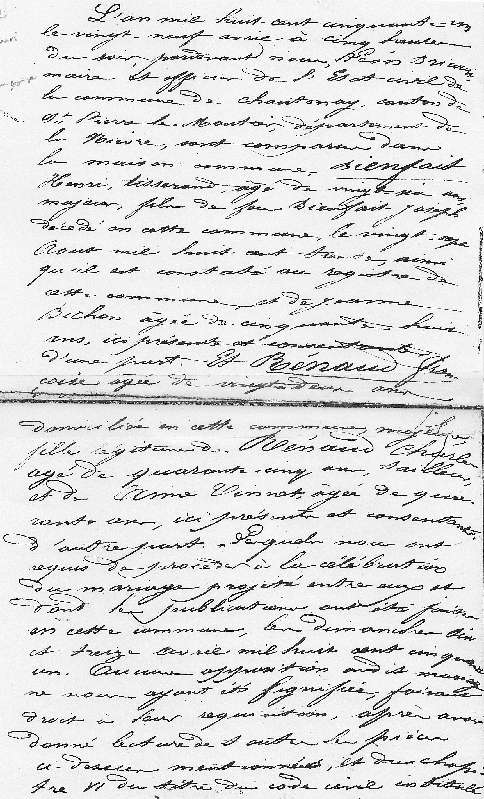 L'an mil huit cent cinquante-un
le vingt neuf avril à cinq heures
du soir, pardevant nous, 
maire et officier de l'Etat-civil de
la commune de Chantenay, canton de
St Pierre le Moutier, département de
la Nièvre, sont comparus dans
la maison commune, Bienfait
Henri, tisserand, agé de vingt-six ans,
majeur, fils de feu Bienfait Joseph
décédé en cette commune, le vingt-
Aout mil huit cent trente, ainsi
qu'il est constaté au registre de
cette commune, et de Jeanne
Bichon agée de cinquante-huit
ans, ici présente et consentante
d'une part. Et Rénaud Fran
coise agée de vingt deux ans
domiciliée en cette commune,
fille légitime de Rénaud Charles
agé de quarante-cinq ans, tailleur,
et de Anne Vinnet, agée de qua
rante ans, ici présents et consentants
d'autre part. Lesquels nous ont
requis de procéder à la célébration
du mariage projeté entre eux et
dont les publications ont été faites
en cette commune, les dimanches six
et treize avril mil huit cent cinquante
un. Aucune opposition audit mariage
ne nous ayant été signifiée, faisant
droit à leur requisition, après avoir
donné lecture de toutes les pièces
ci-dessus mentionnées, et du chapi-
tre VI du titre du code civil intitulé